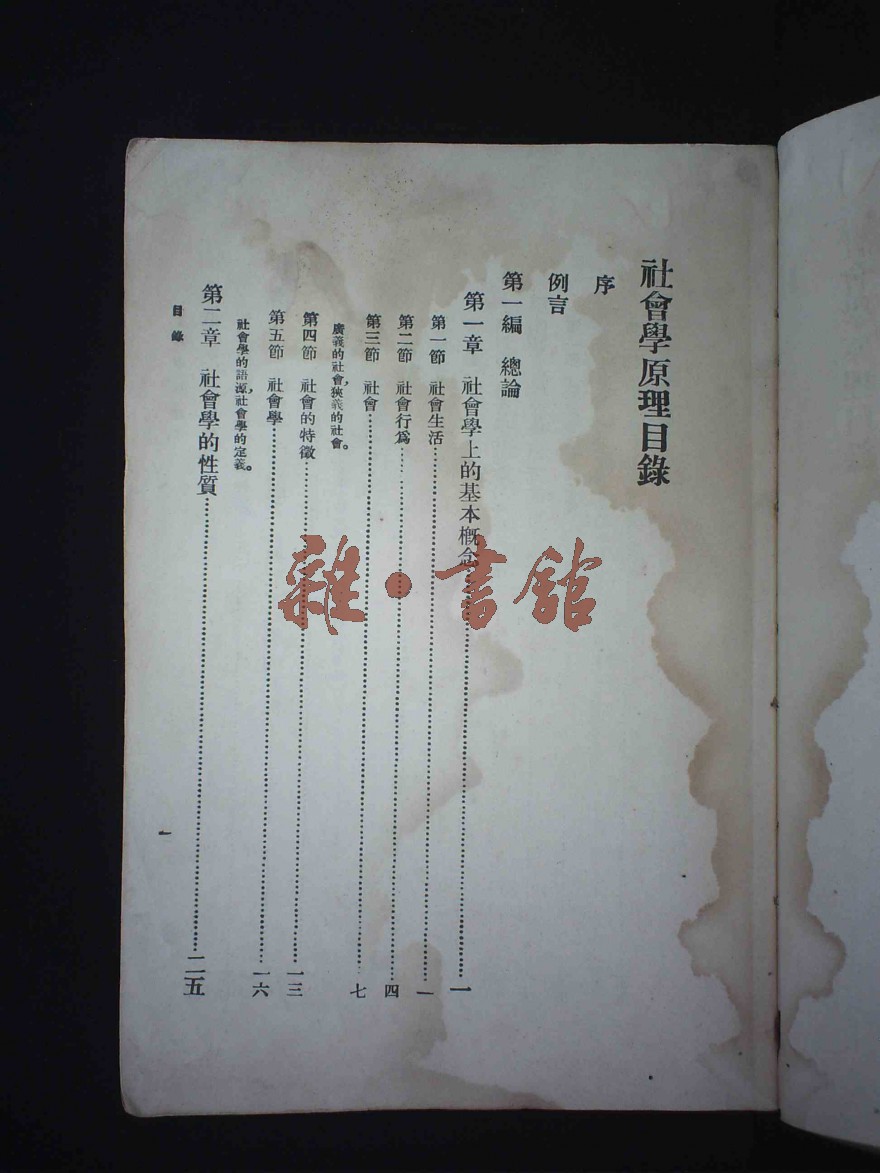 社會學原理目錄
序
例言
第一編 總論
第一章 社會學上的基本概念…………一
第一節 社會生活…………一
第二節 社會行爲…………四
第三節 社會…………七
廣義的社會，狹義的社會。
第四節 社會的特徵…………一三
第五節 社會學…………一六
社會學的語源，社會學的定義。
第二章 社會學的性質…………二五
目錄
一
雜·書館